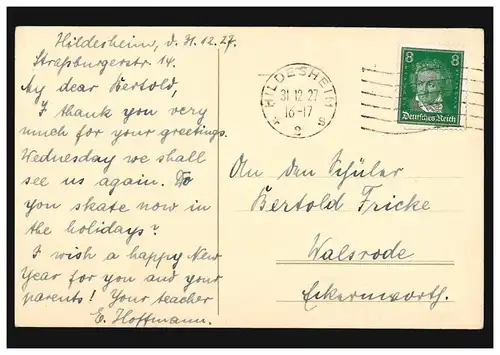 Hildesheim, d. 31.12.27.
Straßburgerstr. 14.
My dear Bertold,
I thank you very
much for your greetings.
Wednesday we shall
see us again. Do
you skate now in
the holidays?
I wish a happy New
Year for you and your
parents! Your teacher
E. Hoffmann.
HILDESHEIM
31.12.27
16-17
* 2 s
8 8
Deutsches Reich
An den Schüler
Bertold Fricke
Walsrode
Eckernworth.